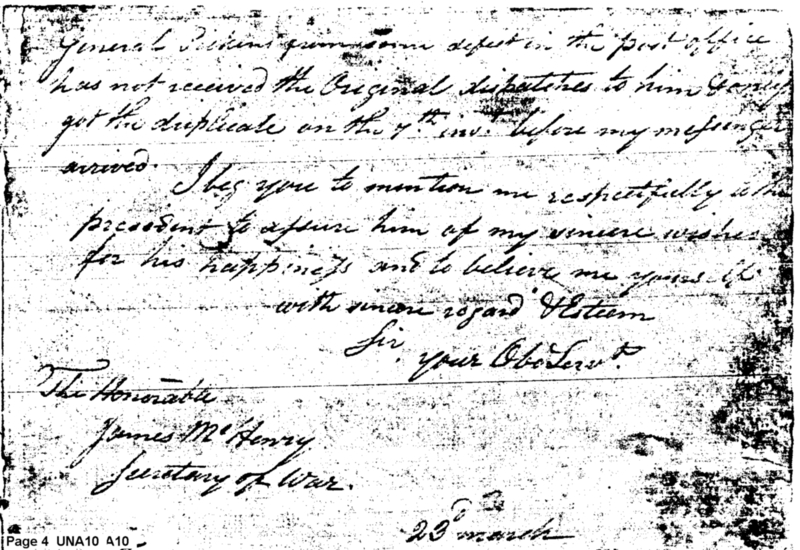 General Pickens from some defect in the post office
has not received the Original dispatches to him & only
got the duplicate on the 7th inst. before my messenger
arrived.
I beg you to mention me respectfully to the
president to assure him of my sincere wishes
for his happiness and to believe me yourself
with sincere regard & Esteem
Sir
your Obt Servt.
The Honorable
James McHenry
Secretary of War.
23d march
Page 4 UNA10 A10